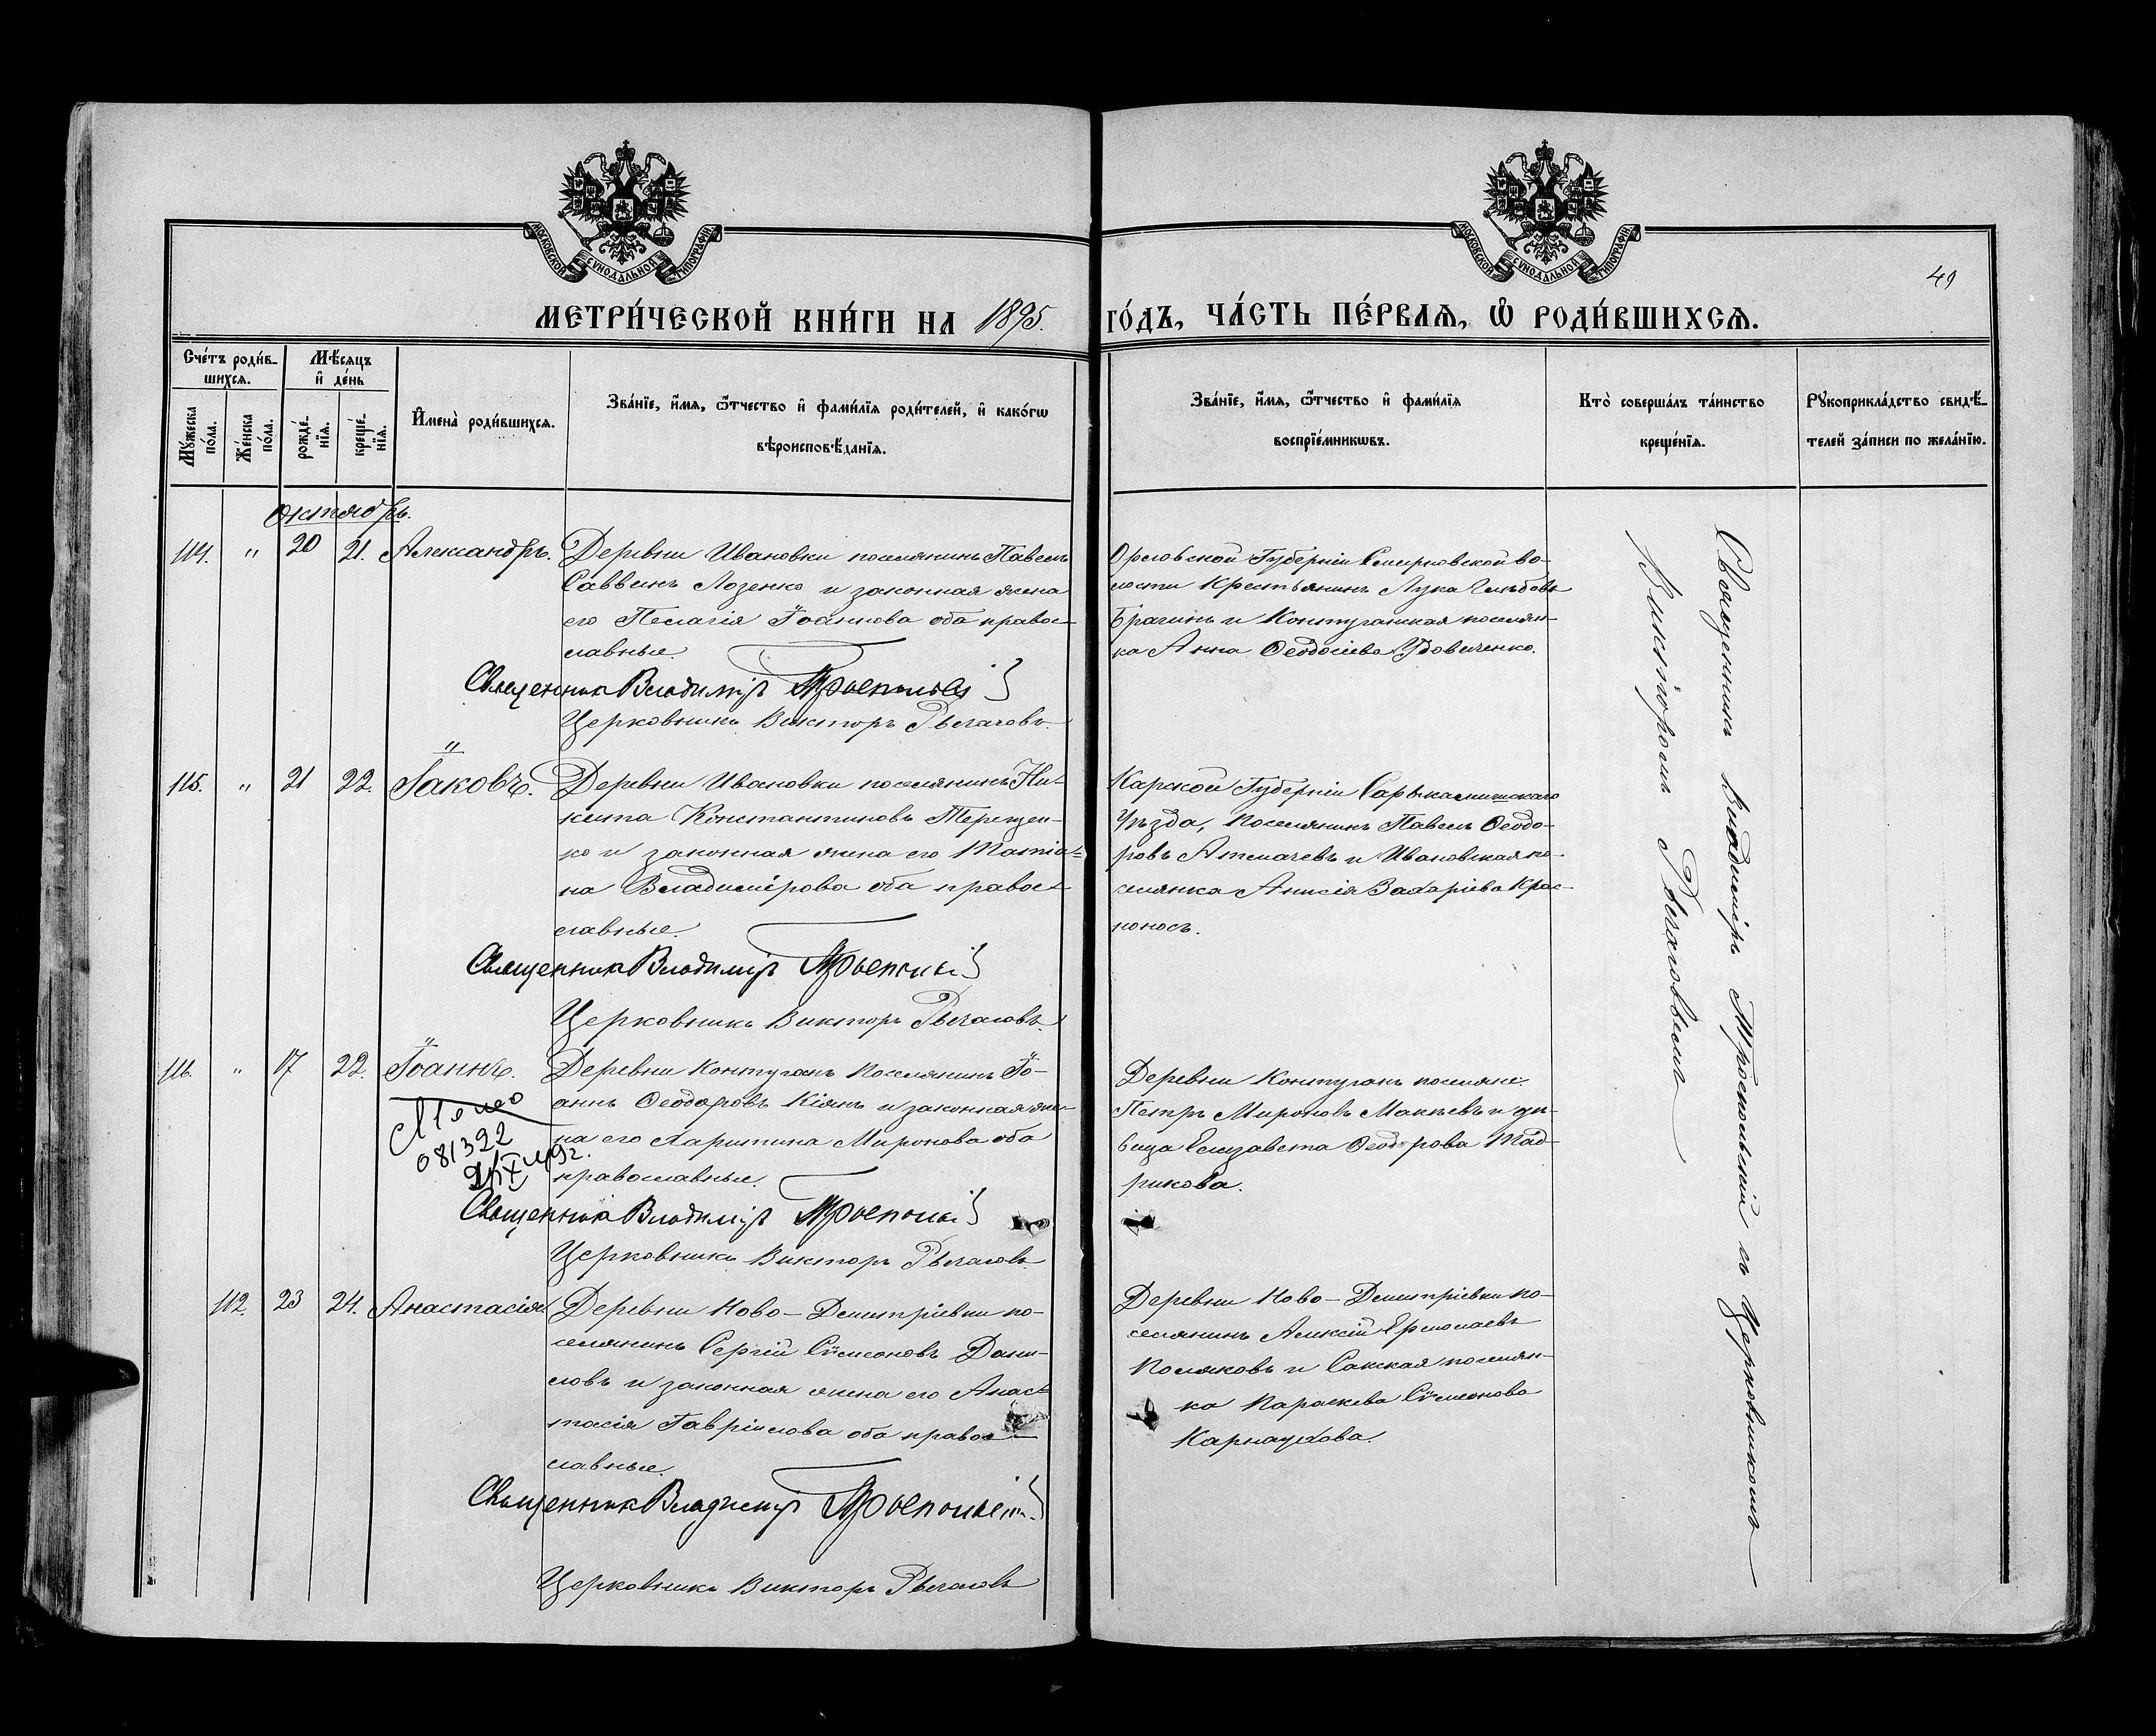 МОСКОВСКОЙ СѴНОДАЛЬНОЙ ТИПОГРАФІИ
МОСКОВСКОЙ СѴНОДАЛЬНОЙ ТИПОГРАФІИ
49
МЕТРИ́ЧЕСКОЙ КНИ́ГИ НА 1895.
ГО́ДЪ, ЧА́СТЬ ПЕ́РВАѦ, Ѡ҆ РОДИ́ВШИХСѦ.
Сче́тъ роди́в-
шихсѧ.
Мѣ́сяцъ
и҆ де́нь
Мꙋ́жеска
по́ла.
Же́нска
по́ла.
рожде́-
нїѧ.
креще́-
нїѧ.
И҆мена̀ роди́вшихсѧ.
Зва́нїе, и҆́мѧ, ѻ҆́тчество и҆ фами́лїѧ роди́телей, и҆ како́гѡ
вѣроисповѣ́данїѧ.
Зва́нїе, и҆́мѧ, ѻ҆́тчество и҆ фами́лїѧ
воспрїе́мникѡвъ.
Кто̀ соверша́лъ та́инство
креще́нїѧ.
Рꙋкоприкла́дство свидѣ́-
телей за́писи по жела́нїю.
Октябрь.
114. " 20 21. Александръ. Деревни Ивановки поселянинъ Павелъ
Саввинъ Лозенко и законная жена
его Пелагія Іоаннова оба правос-
лавные.
Священник Владимір
Церковникъ Викторъ Рычаговъ
Орловской Губерніи во-
лости Крестьянинъ Лука Глѣбовъ
Брагинъ и Контуганская поселян-
ка Анна Ѳеодосіева Удовиченко.
115. " 21 22. Іаковъ. Деревни Ивановки поселянинъ Ни-
кита Константиновъ Терещен-
ко и законная жена его Татіа-
на Владимірова оба правос-
лавные.
Священник Владимір
Церковникъ Викторъ Рычаговъ
Карской Губерніи Сарыкамышскаго
Уѣзда, Поселянинъ Павелъ Ѳеодо-
ровъ и Ивановская по-
селянка Анисія Захаріева Крас-
нонос.
116. " 17 22. Іоаннъ. Деревни Контуганъ Поселянинъ Іо-
аннъ Ѳеодоровъ Кіянъ и законная же-
на его Харитина Миронова оба
православные.
081392
Священник Владимір
Церковникъ Викторъ Рычаговъ
Деревни Контуганъ поселяне
Петръ Мироновъ и дѣ-
вица Елизавета Ѳеодорова
рикова.
112. 23 24. Анастасія Деревни Ново-Димитріевки по-
селянинъ Сергій Сѵмеоновъ Дани-
ловъ и законная жена его Анас-
тасія Гавріилова оба правос-
лавные.
Священник Владимір
Церковникъ Викторъ Рычаговъ
Деревни Ново-Димитріевки по-
селянинъ Алексій Ермолаевъ
Поляковъ и Сакская поселян-
ка Параскева Сѵмеонова
Карнаухова.
Священникъ Владиміръ Троепольскій съ Церковникомъ
Викторомъ Рычаговымъ